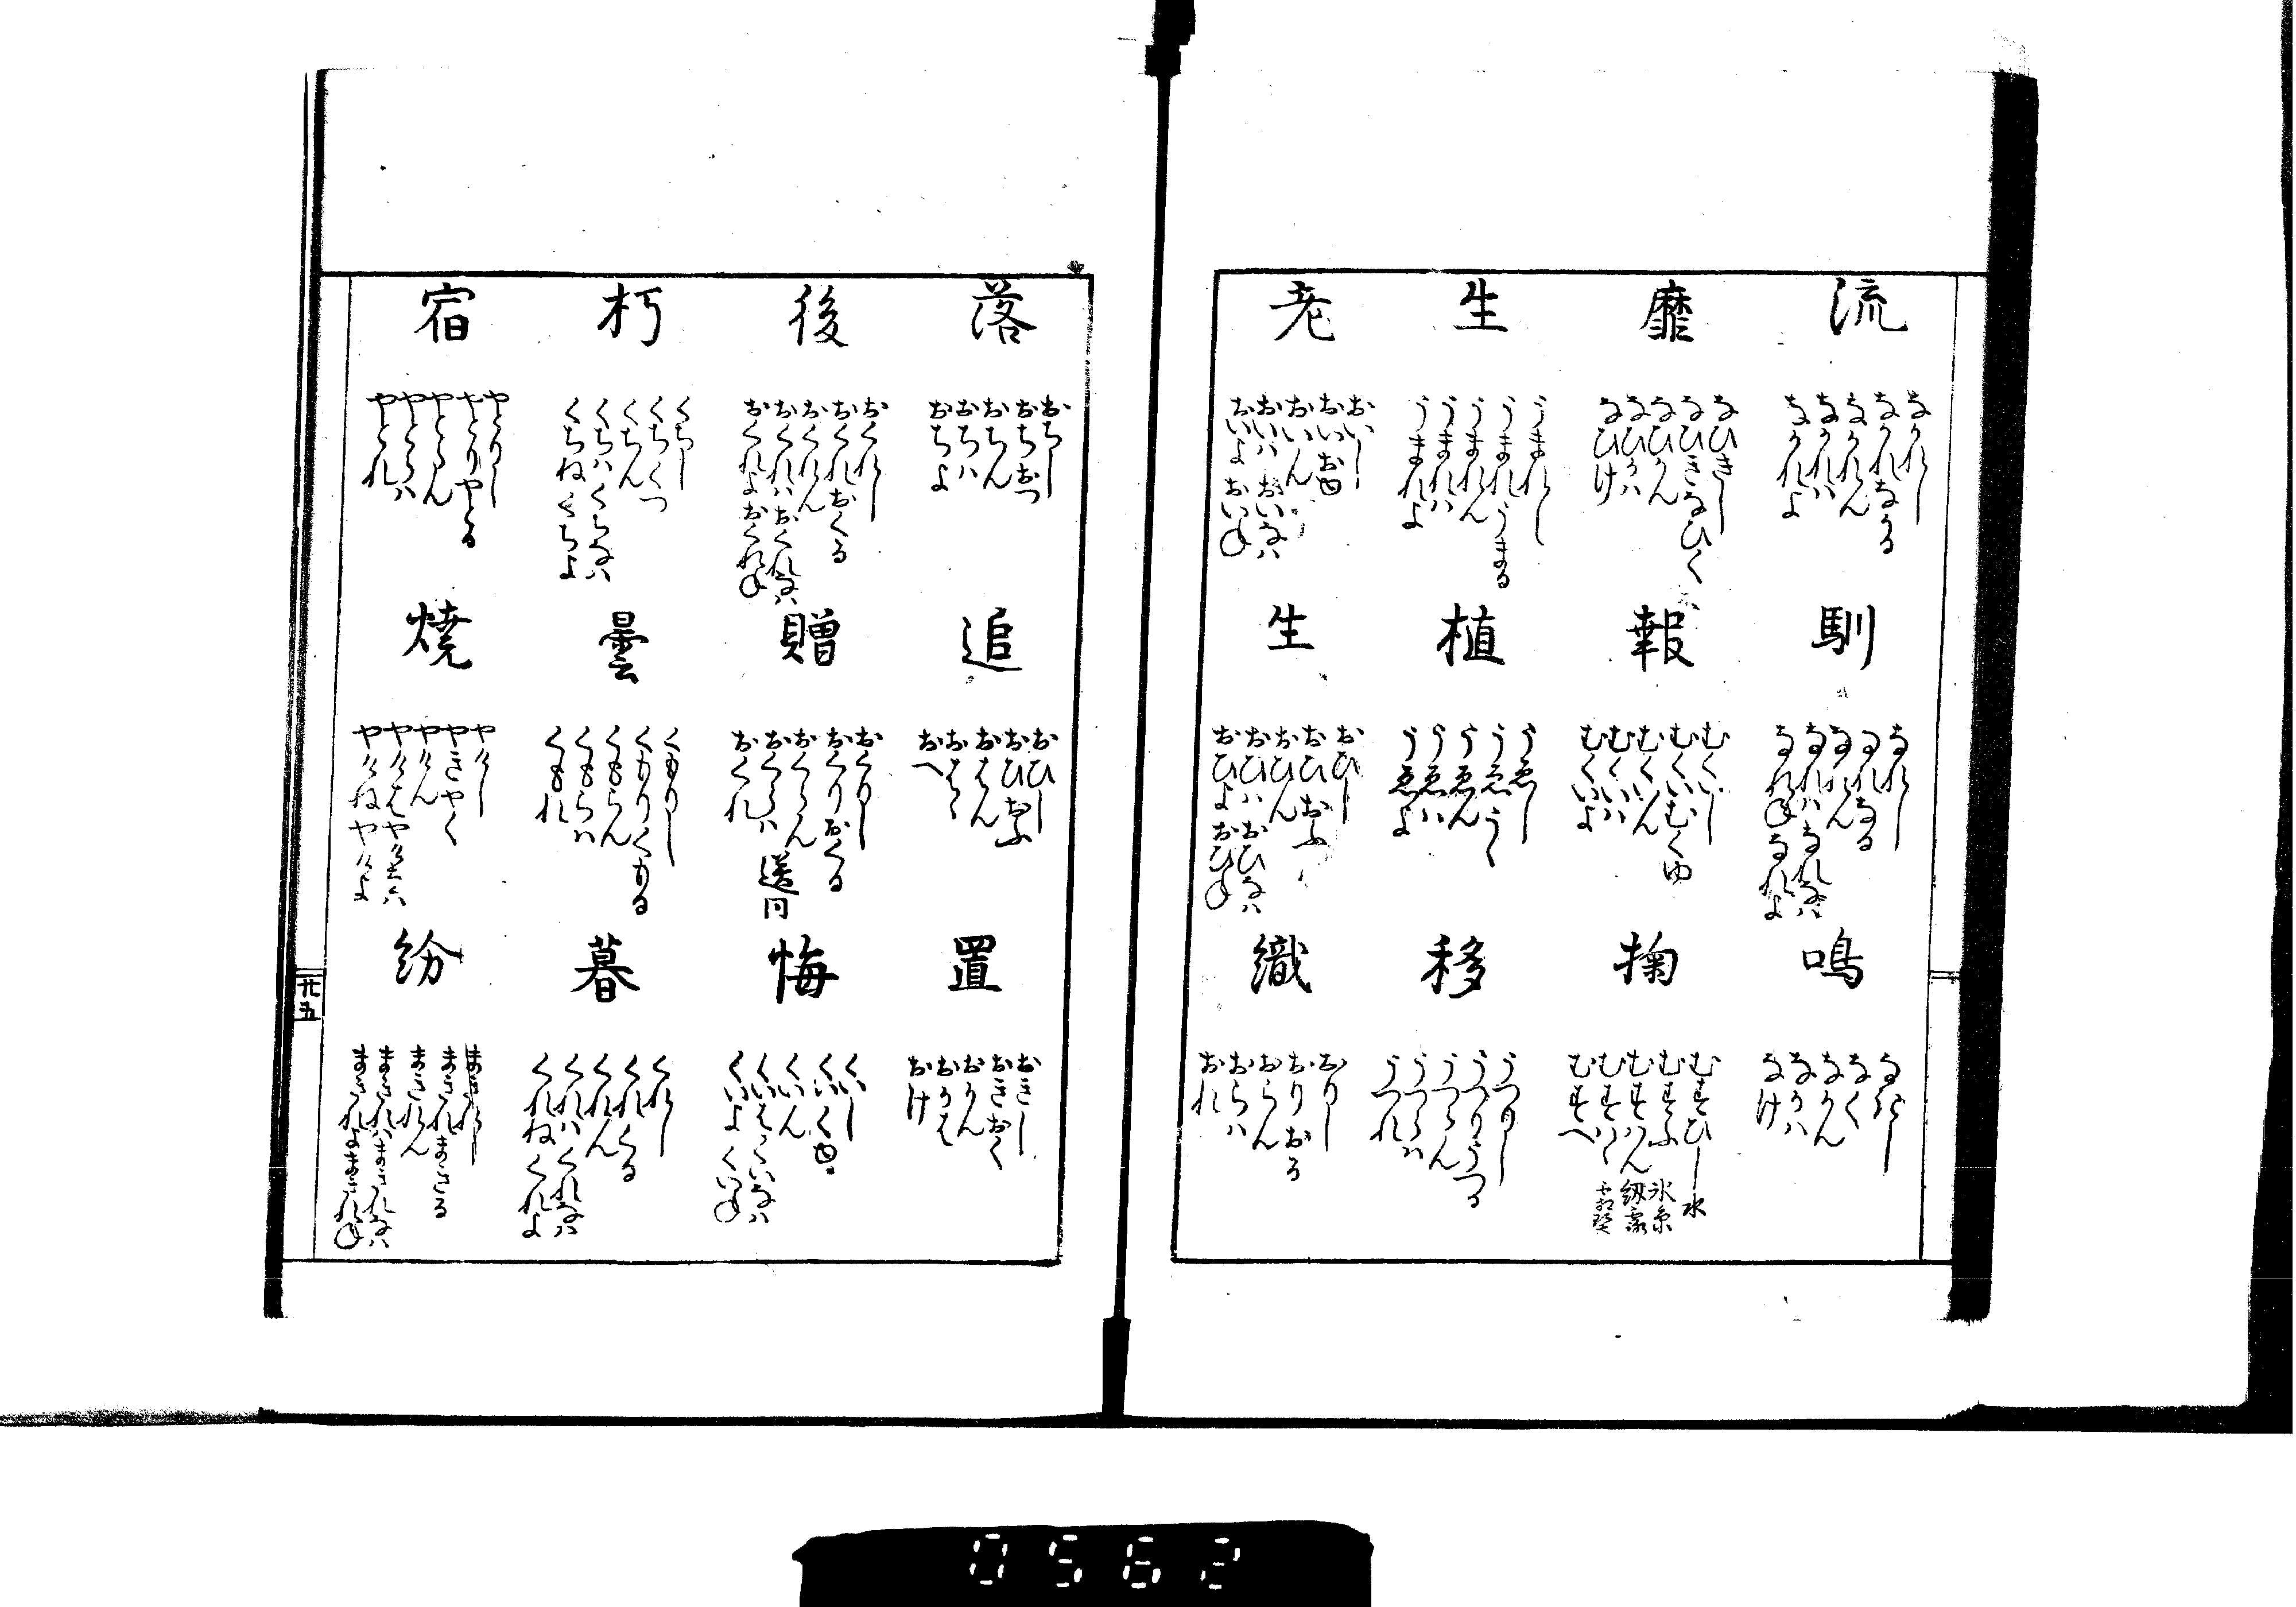 流
なかれし
なかれなかる
なかれん
なかれハ
なかれよ
馴
なれし
なれなる
なれん
なれハなれなハ
なれねなれよ
鳴
なきし
なく
なかん
なかハ
なけ
靡
なひきし
なひきなひく
なひかん
なひかハ
なひけ
報
むくいし
むくいむくゆ
むくいん
むくいハ
むくいよ
掬
むすひし水
むすふ
むすハん
むすハゝ
むすへ
生
うまれし
うまれうまる
うまれん
うまれハ
うまれよ
植
うゑし
うゑうゝ
うゑん
うゑハ
うゑよ
移
うつりし
うつりうつる
うつらん
うつらハ
うつれ
老
おいし
おいおゆ
おいん
おいハおいなハ
おいよおいね
生
おひし
おひおふ
おひん
おひハおひなハ
おひよおひね
織
おりし
おりおる
おらん
おらハ
おれ
落
おちし
おちおつ
おちん
おちハ
おちよ
追
おひし
おひおふ
おはん
おはゝ
おへ
置
おきし
おきおく
おかん
おかは
おけ
後
おくれし
おくれおくる
おくれん
おくれハおくれなハ
おくれよおくれね
贈
おくりし
おくりおくる
おくらん
おくらハ 送同
おくれ
悔
くいし
くいくゆ
くいん
くいはくいなハ
くいよくいね
朽
くちし
くちくつ
くちん
くちハくちなハ
くちねくちよ
曇
くもりし
くもりくもる
くもらん
くもらハ
くもれ
暮
くれし
くれくる
くれん
くれハくれなハ
くれねくれよ
宿
やとりし
やとりやとる
やとらん
やとらハ
やとれ
焼
やけし
やきやく
やけん
やけはやけなハ
やけねやけよ
紛
まきれし
まきれまきる
まきれん
まきれハまきれなハ
まきれよまきれね
廿五
0562